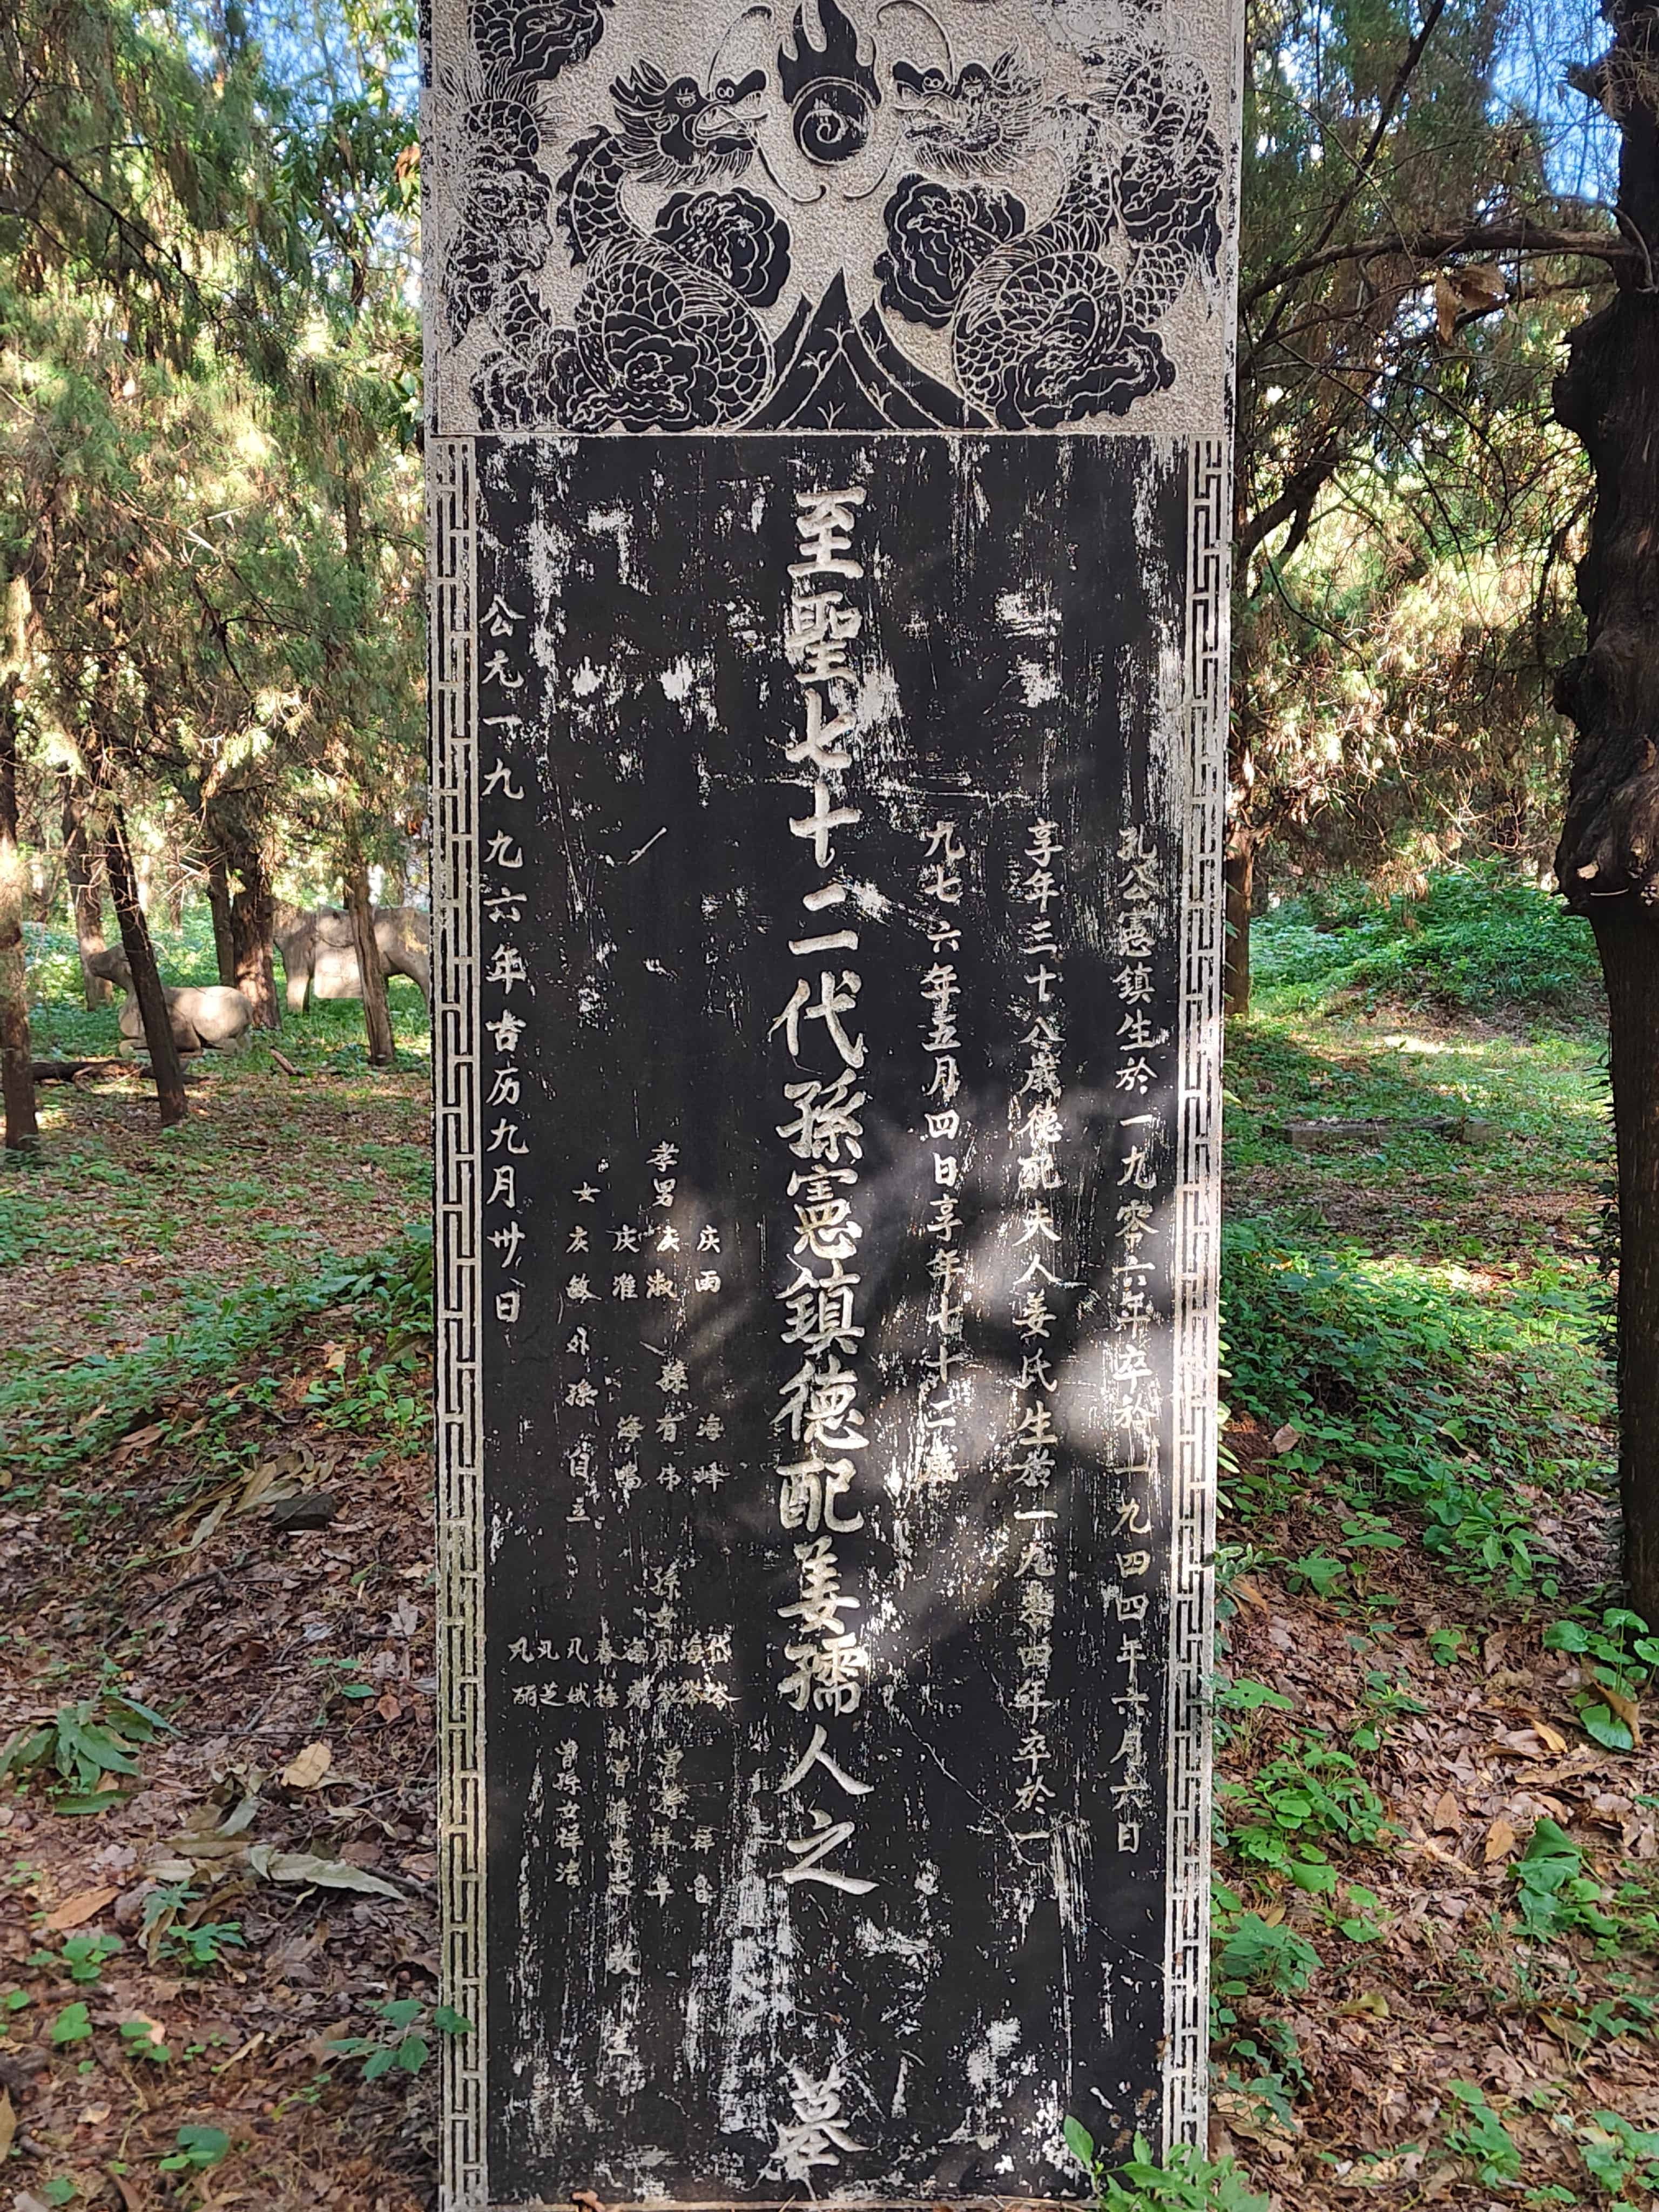 孔公憲鎮生於一九零六年卒於一九四四年六月六日
享年三十八歲德配夫人姜氏生於一九零四年卒於一
九七六年五月四日享年七十二歲
至聖七十二代孫憲鎮德配姜孺人之墓
庆雨 海峰 岱岺 祥
孝男 庆淑 孫 有伟 孫女 海岺 凤岺 曾孫祥
庆准 海鳴 海燕 春梅 外曾孫 敬立
女 庆敏 外孫 自立 凡娥 凡芝 凡丽 曾孫女祥洁
公元一九九六年古历九月卅日